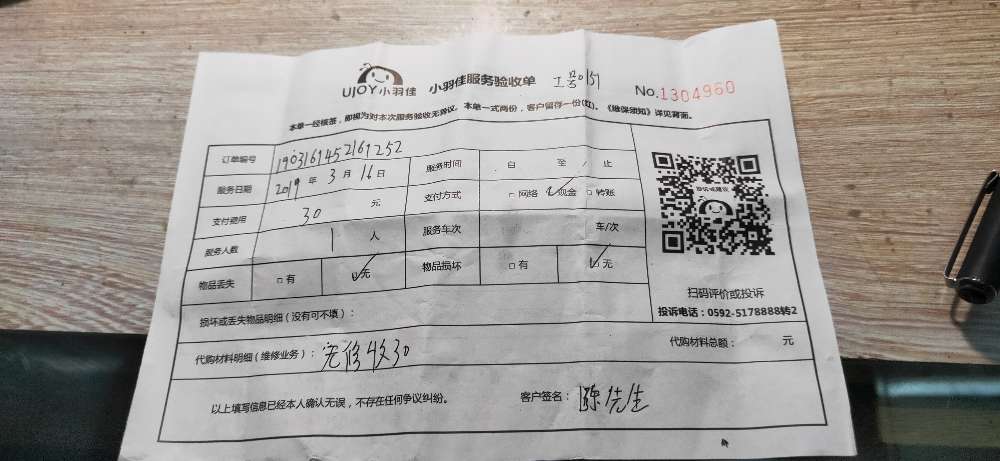 UJOY小羽佳 小羽佳服务验收单 工号0151
No.1304960
本单一经核签，即视为对本次服务验收无异议。本单一式两份，客户留存一份(红)。《维保须知》详见背面。
订单编号 1903169452169252 服务时间 自 至 / 止
服务日期 2019 年 3 月 16 日 支付方式 □ 网络 ☑ 现金 □ 转账
支付费用 30 元 服务车次 车/次
服务人数 1 人
物品丢失 □ 有 ☑ 无 物品损坏 □ 有 ☑ 无
扫码评价或投诉
投诉电话：0592-5178888转2
损坏或丢失物品明细（没有可不填）：
代购材料明细（维修业务）： 修收30 代购材料总额： 元
以上填写信息已经本人确认无误，不存在任何争议纠纷。 客户签名： 陈先生